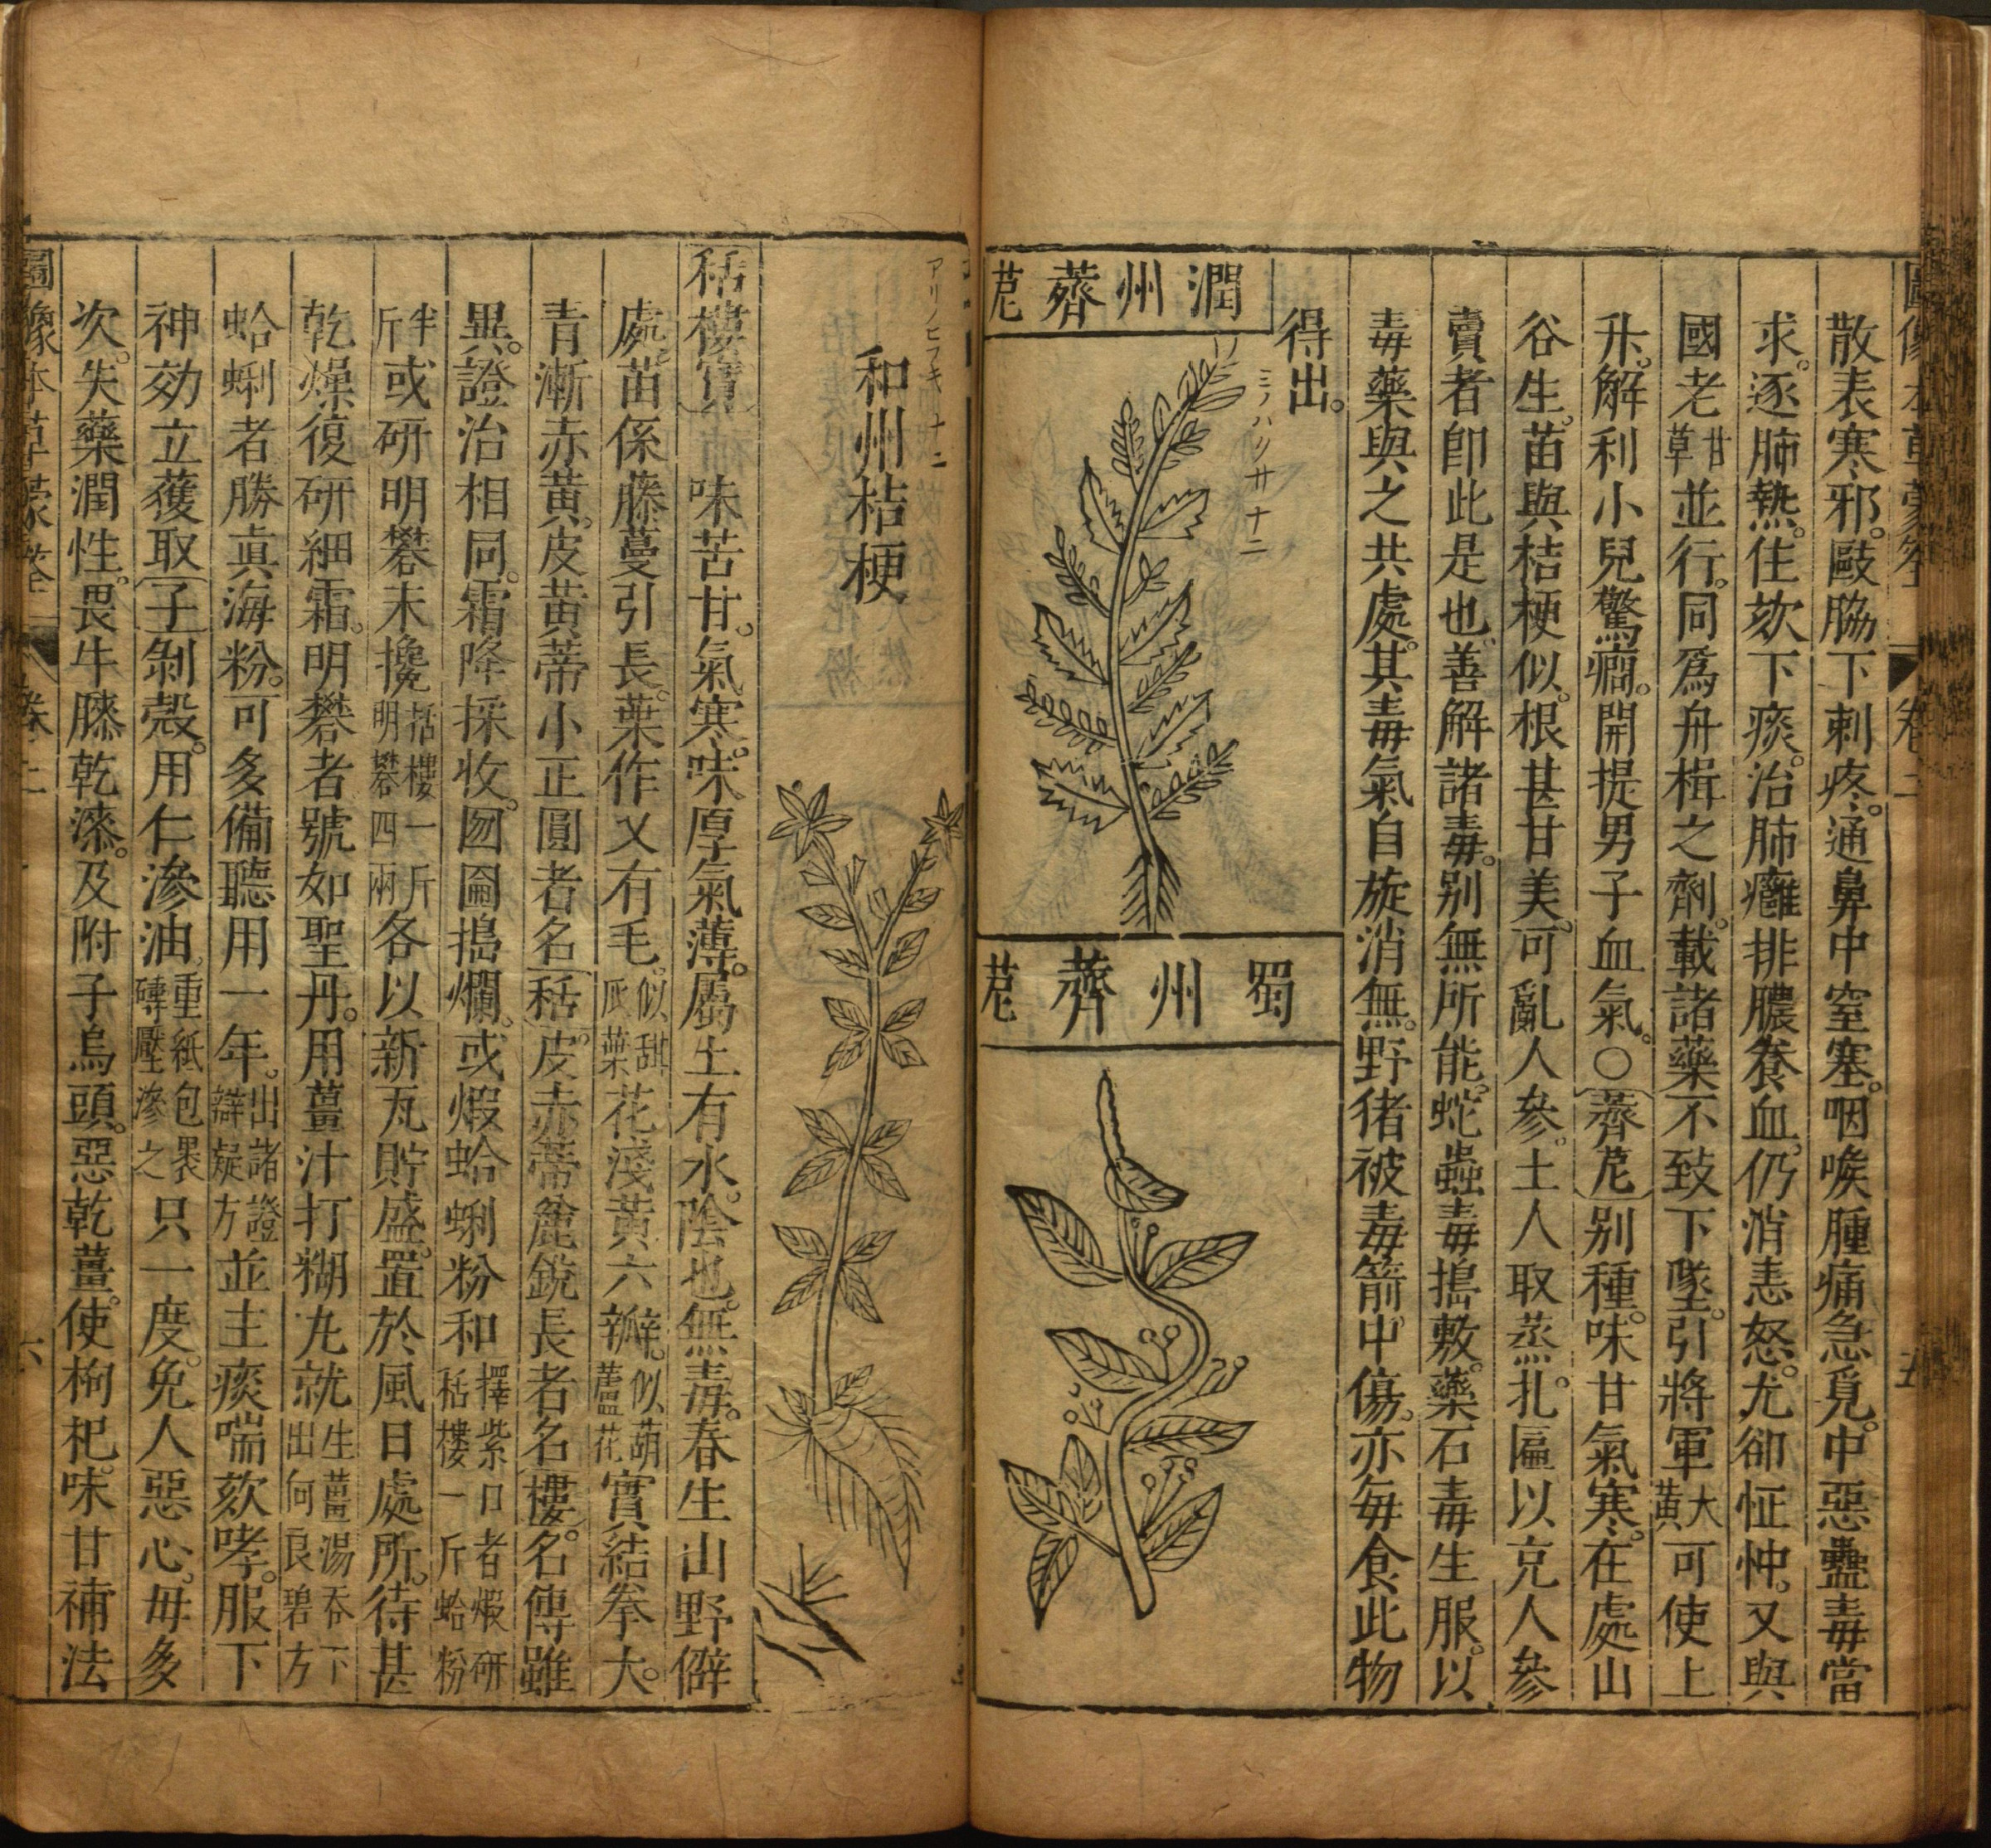 圖像本草蒙筌 卷二 五
散表寒邪。毆脇下刺疼。通鼻中窒塞。咽喉腫痛急覓。中惡蠱毒當
求。逐肺熱。住欬下痰。治肺癰排膿養血。仍消恚怒。尤卻怔忡。又與
國老甘草並行。同爲舟楫之劑。載諸藥不致下墜。引將軍大黃可使上
升。解利小兒驚癎。開提男子血氣。○薺苨別種。味甘氣寒。在處山
谷生。苗與桔梗似。根甚甘美。可亂人參。土人取蒸。扎匾以充人參
賣者卽此是也。善解諸毒。別無所能。蛇蟲毒搗敷。藥石毒生服。以
毒藥與之共處。其毒氣自旋消無。野猪被毒箭中傷。亦每食此物
得出。
潤州薺苨
ミノハリ 廿十二
蜀州薺苨
アリノヒフキ 十二
和州桔梗
栝樓實 味苦甘。氣寒。味厚氣薄。屬土有水。陰也。無毒。春生山野僻
處。苗係藤蔓引長。葉作叉有毛。似甜瓜葉花淺黃六瓣。似葫蘆花實結拳大。
青漸赤黃。皮黃蒂小正圓者名栝。皮赤蒂麄銳長者名樓。名傳雖
異。證治相同。霜降採收。囫圇搗爛。或煆蛤蜊粉和擇紫口者煆研栝樓一斤蛤粉
半斤或研明礬末攙栝樓一斤明礬四兩各以新瓦貯盛。置於風日處所。待甚
乾燥復研細霜。明礬者號如聖丹。用薑汁打糊丸就生薑湯吞下出何良碧方
蛤蜊者勝眞海粉。可多備聽用一年。出諸證辯疑方並主痰喘欬哮。服下
神効立獲取子剝殼。用仁滲油。重紙包褁磚壓滲之只一度。免人惡心。毋多
次。失藥潤性。畏牛膝乾漆。及附子烏頭。惡乾薑。使枸杞。味甘補法
圖像本草蒙筌 卷二 六